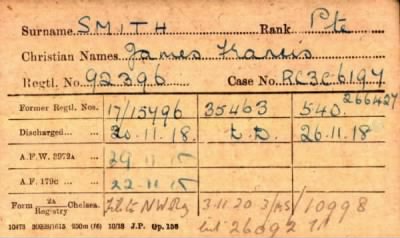 Surname SMITH Rank Pte
Christian Names James Francis
Regtl. No. 92396 Case No. RC3C6194
Former Regtl. Nos. 17/15496 35463 540 266427
Discharged 20.11.18. 26.11.18
A.F.W. 3972a 29.11.15
A.F. 179c 22.11.15
Form 2a Registry Chelsea. 3.11.20 3/AS/10998
10473 250m (16) 10/18 J.P. Gp. 156 26092